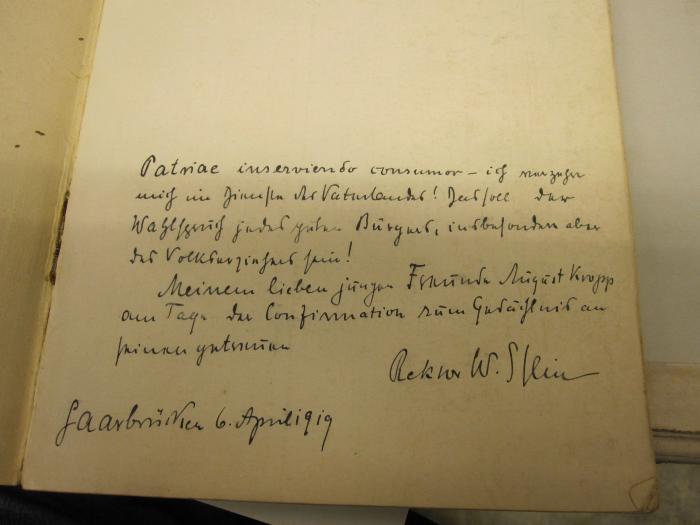 Patriae inserviendo consumor – ich verzehre
mich im Dienste des Vaterlandes! Das soll der
Wahlspruch jedes guten Bürgers, insbesondere aber
des Volkserziehers sein!
Meinem lieben jungen Freunde August Kropp
am Tage der Confirmation zum Gedächtnis an
seinen getreuen
Rektor W.
Saarbrücken 6. April 1919